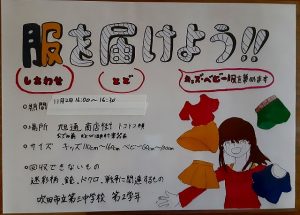 服を届けよう!!
しあわせ
とど
キッズ・ベビー服を集めます
○期間 11月2日 16:00〜16:30
○場所 旭通商店街
○サイズ キッズ 110cm〜160cm ベビー 60cm〜100cm
○回収できないもの
迷彩柄、銃、ドクロ、戦争に関連するもの
吹田市立第三中学校 第2学年